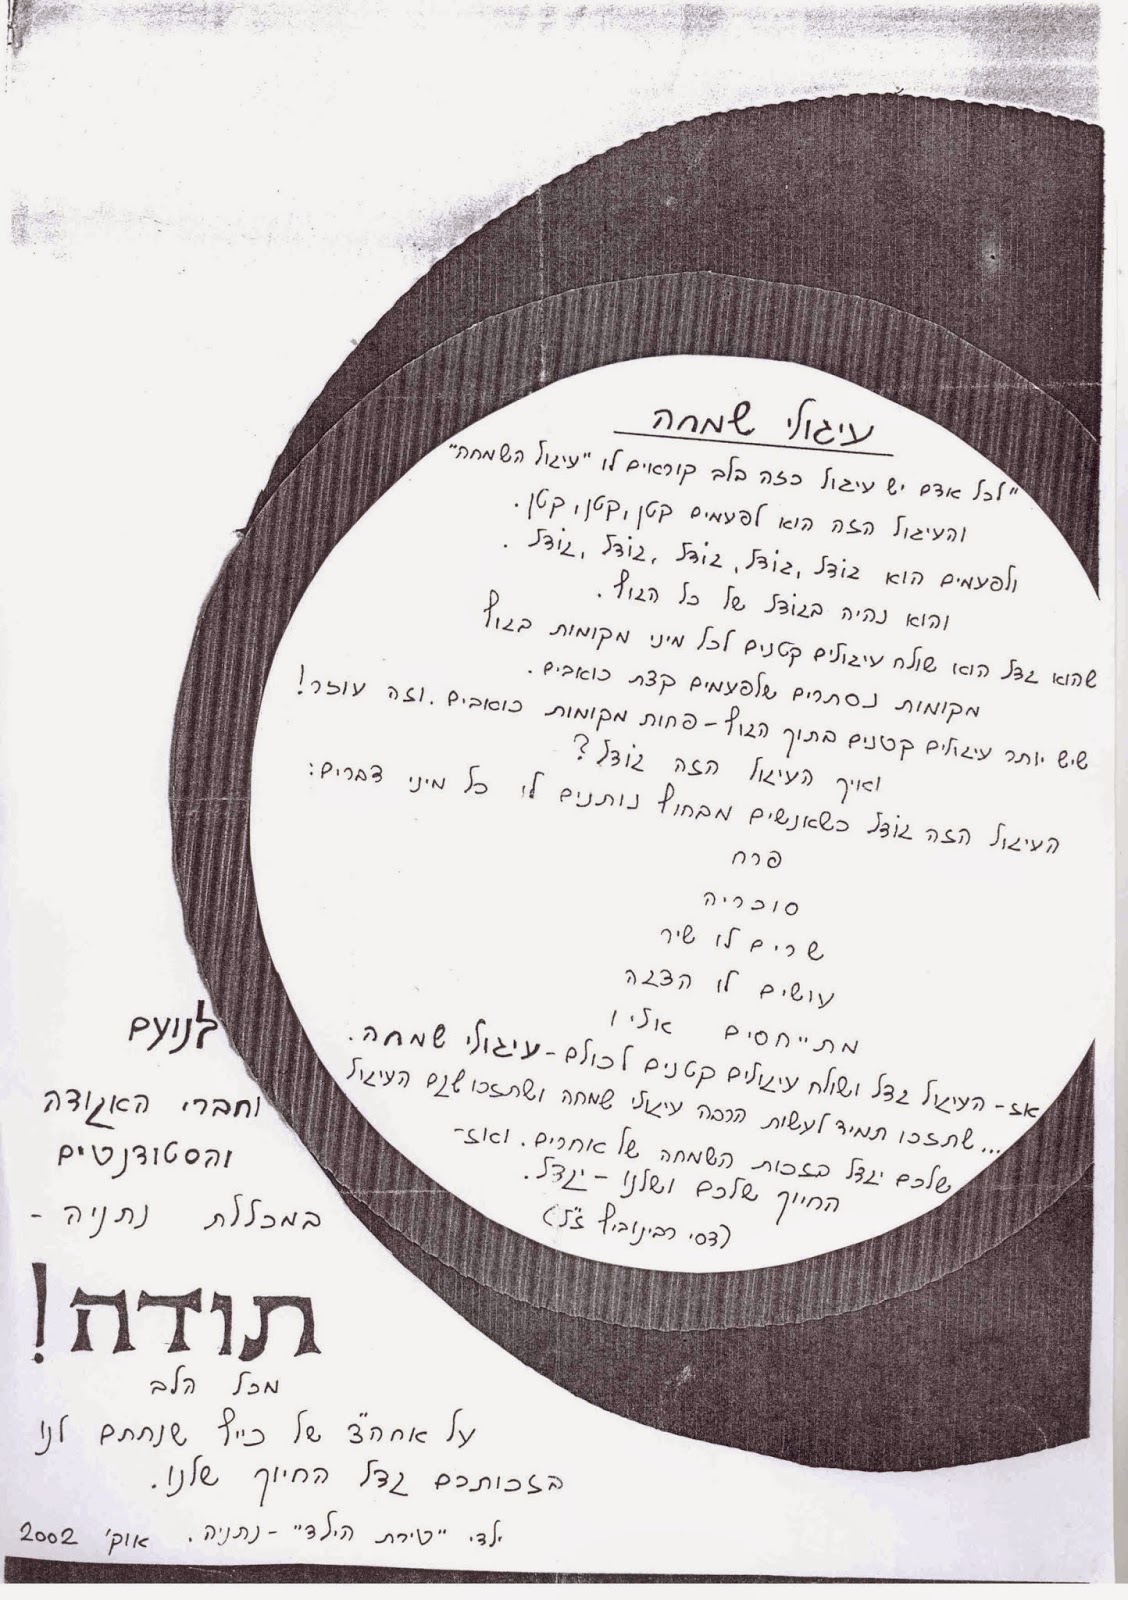 עיגולי שמחה
"לכל אדם יש עיגול כזה בלב קוראים לו "עיגול השמחה"
והעיגול הזה הוא לפעמים קטן, קטן, קטן.
ולפעמים הוא גודל, גודל, גודל, גודל, גודל.
והוא נהיה בגודל של כל הגוף.
שהוא גדל הוא שולח עיגולים קטנים לכל מיני מקומות בגוף
מקומות נסתרים שלפעמים קצת כואבים.
שיש יותר עיגולים קטנים בתוך הגוף - פחות מקומות כואבים. וזה עוזר!
ואיך העיגול הזה גודל?
העיגול הזה גודל כשאנשים מבחוץ נותנים לו כל מיני דברים:
פרח
סוכריה
שרים לו שיר
עושים לו הצגה
מתייחסים אליו
אז- העיגול גדל ושולח עיגולים קטנים לכולם - עיגולי שמחה.
...שתזכו תמיד לעשות הרבה עיגולי שמחה ושתזכו שגם העיגול
שלכם יגדל בזכות השמחה של אחרים. ואז-
החיוך שלכם ושלנו - יגדל.
(דסי רבינוביץ ז"ל)
לנועם
וחברי האגודה
והסטודנטים
במכללת נתניה -
תודה!
מכל הלב
על אחה"צ של כייף שנתתם לנו
בזכותכם גדל החיוך שלנו.
ילדי "טירת הילד" - נתניה. אוק' 2002